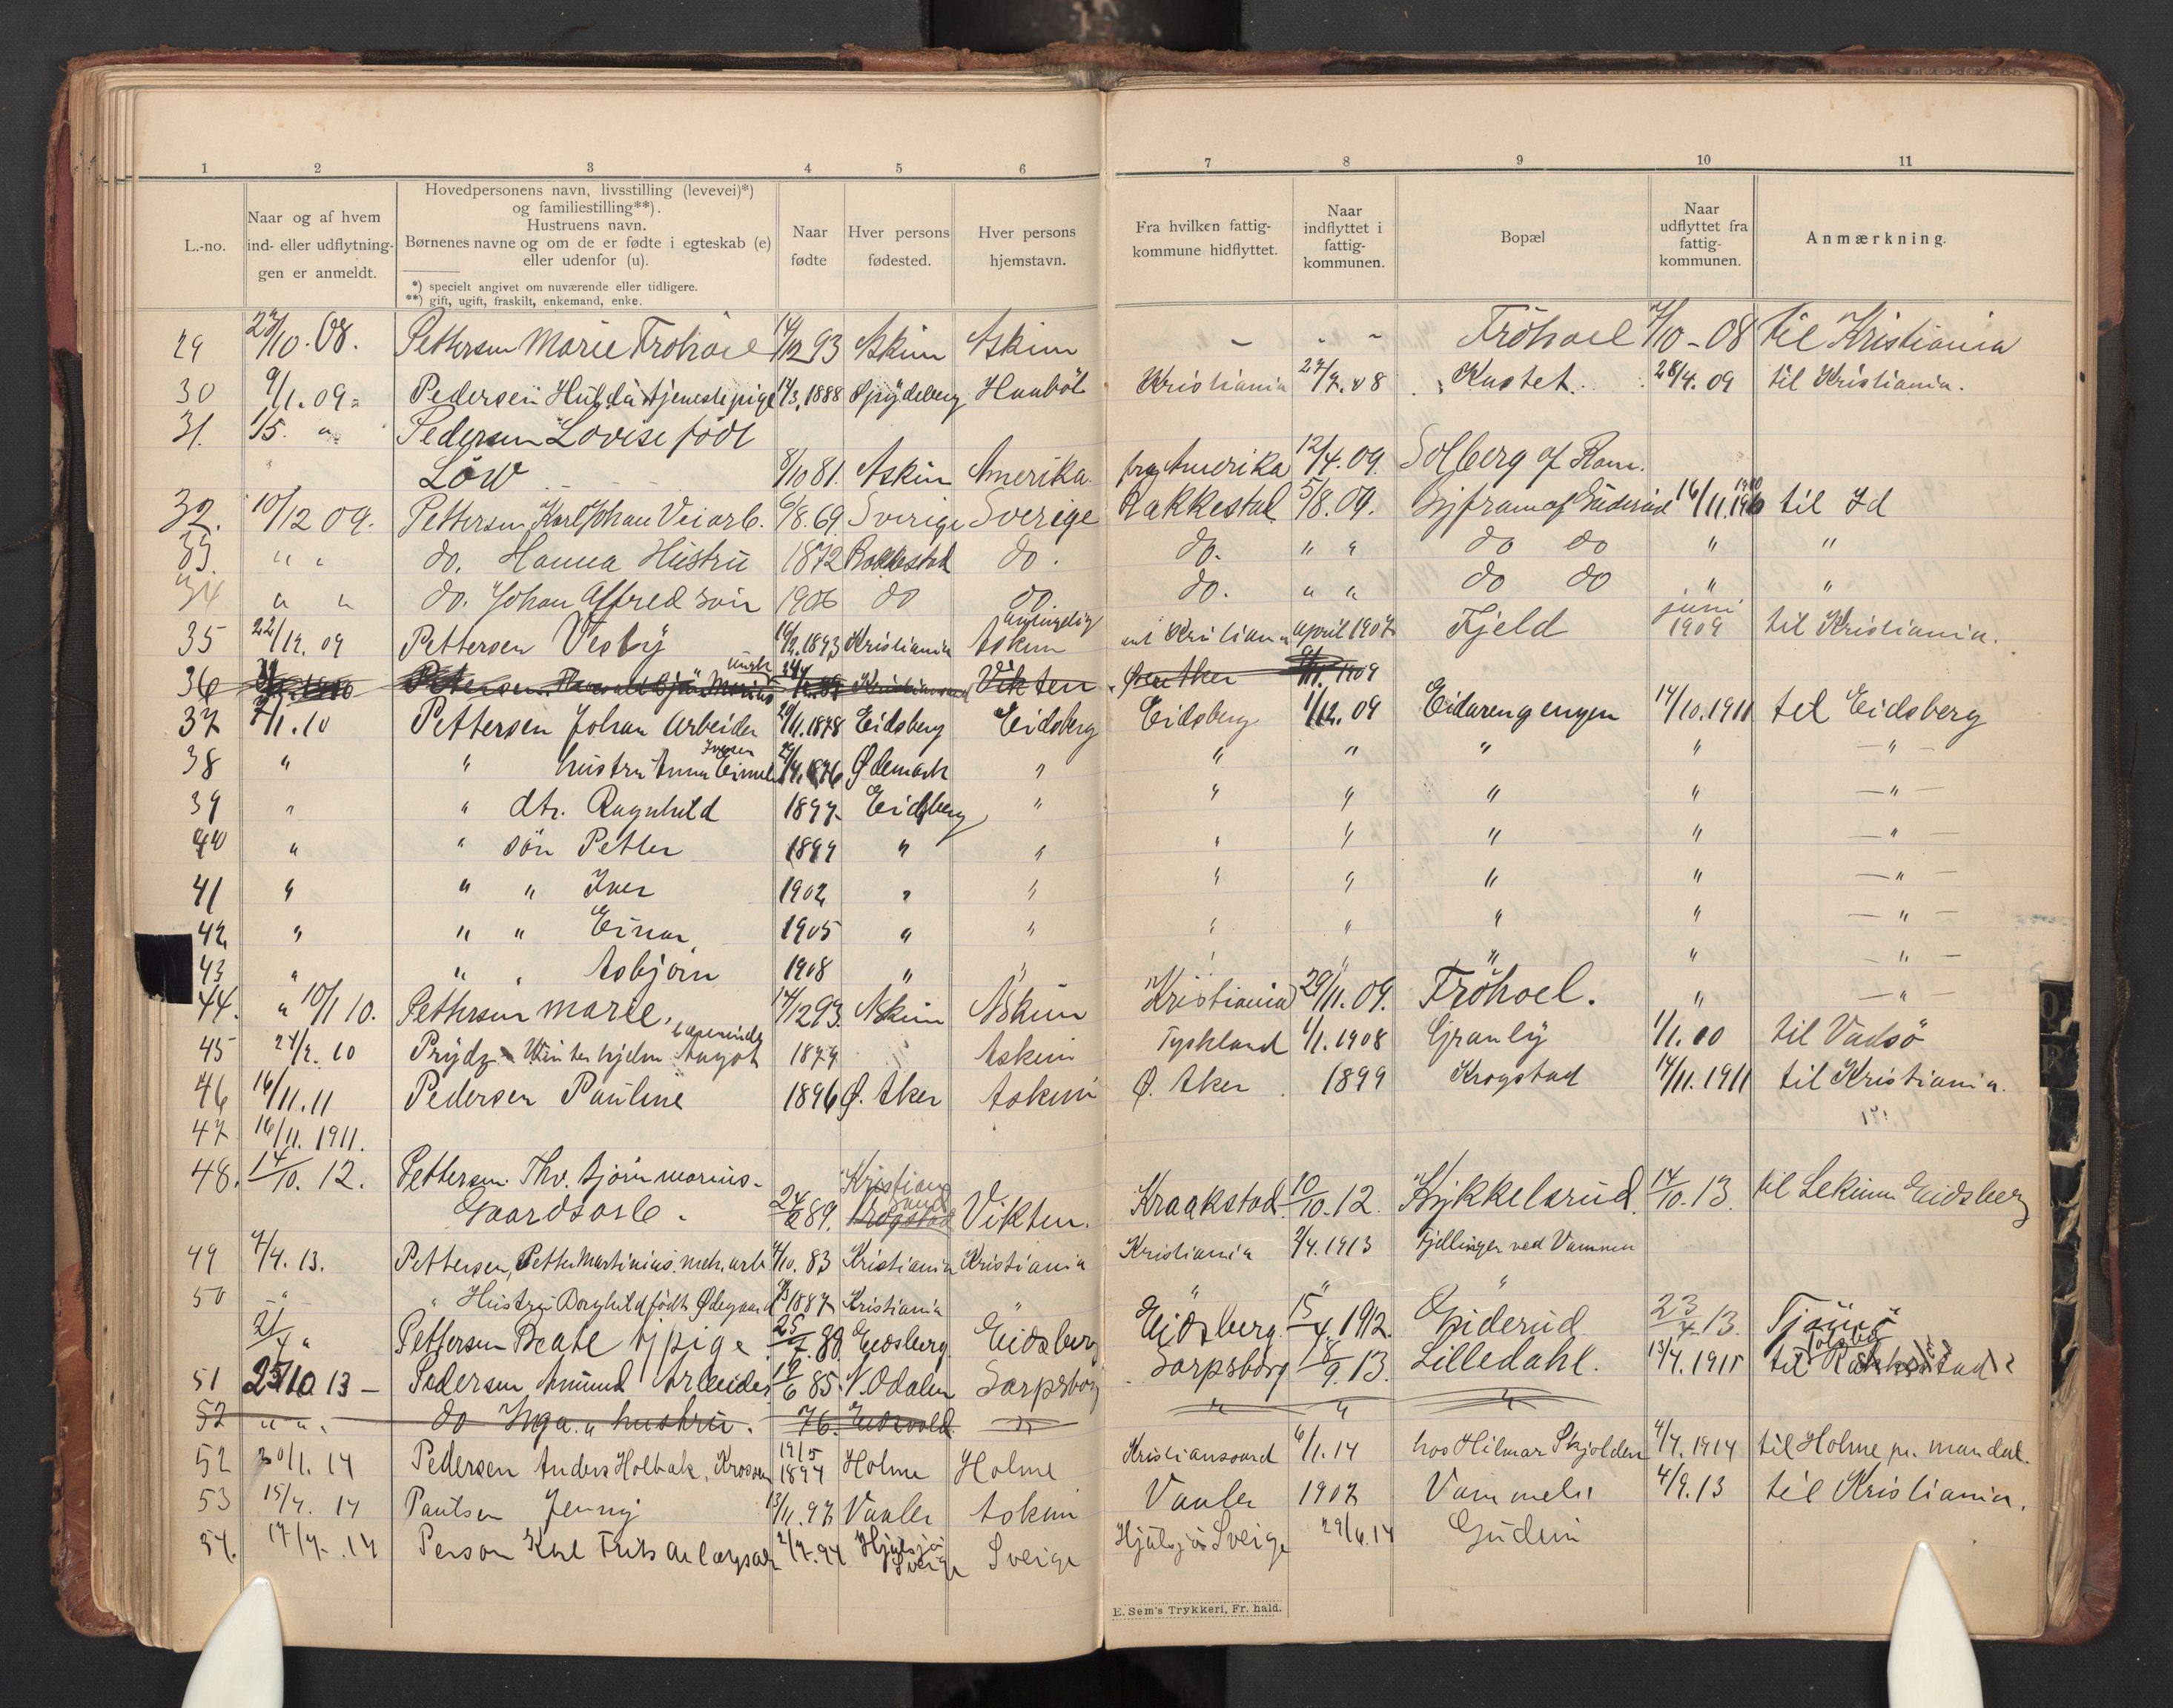 1 2 3 4 5 6 7 8 9 10 11
L.-no.
Naar og af hvem
ind- eller udflytnin-
gen er anmeldt.
Hovedpersonens navn, livsstilling (levevei)*)
og familiestilling**).
Hustruens navn.
Børnenes navne og om de er fødte i egteskab (e)
eller udenfor (u).
*) specielt angivet om nuværende eller tidligere.
**) gift, ugift, fraskilt, enkemand, enke.
Naar
fødte
Hver persons
fødested.
Hver persons
hjemstavn.
Fra hvilken fattig-
kommune hidflyttet.
Naar
indflyttet i
fattig-
kommunen.
Bopæl
Naar
udflyttet fra
fattig-
kommunen.
Anmærkning.
29 27/10.08. Pettersen Marie Fröhoel 14/12 93 Askim Askim - - - Fröhoel 7/10-08 til Kristiania
30 9/1.09 Pedersen Hulda tjenestepige 14/3 1888 Spydeberg Haabøl Kristiania 27/7.08 Kastet. 28/4.09 til Kristiania.
31. 1/5. " Pedersen Lovise født
Löw 8/10 81. Askim Amerika. fra Amerika 12/4.09. Solberg af Rom.
32. 10/12 09. Pettersen Karl Johan Veiarb. 6/8.69. Sverige Sverige Rakkestad 5/8.09. 16/11.1910 til Id
33. " " do. Hanna Hustru 1872 Rakkestad do. do. " " do do " "
34 " " do. Johan Alfred sön 1906 do do. do. " " do do " "
35 22/12.09 Pettersen Vesby 1893 Kristiania Askim Kristiania april 1907 Fjeld juni 1909 til Kristiania.
36 Petersen Marius Kristiansand Vikten Østre Aker 1909
37 7/1.10 Pettersen Johan Arbeider 29/11.1878 Eidsberg Eidsberg Eidsberg 1/12.09 Eidarengengen 14/10.1911 til Eidsberg
38 " " hustru Anna Iversen 1876 Ødemark " " " " " - " -
39 " " dtr. Ragnhild 1897 Eidsberg " " " " " - " -
40 " " sön Petter 1899 " " " " " " - " -
41 " " " Iver 1902 " " " " " " - " -
42 " " " Einar 1905 " " " " " " - " -
43 " " " Asbjørn 1908 " " " " " " - " -
44. " 10/1 10. Pettersen Marie, 14/12 93. Askim Askim Kristiania 29/11.09. Fröhoel. " - " -
45 24/2.10 Prydz Winterhjelm Aagot 1879 Askim Tyskland 1/1.1908 Granly 1/1.10 til Vadsö
46 16/11.11 Pedersen Pauline 1896 Ø. Aker Askim Ø. Aker 1899 Krogstad 14/11.1911 til Kristiania.
47 16/11.1911.
48. 14/10.12. Pettersen Thv. Bjørn Marius-
Gaardsarb. 24/2 89. Kristiansand Krogstad Vikten. Kraakstad 10/10.12. Kykkelsrud. 14/10.13. til Lekum Eidsberg
49 7/4.13. Pettersen, Petter Martinius. meh. arb 4/10.83 Kristiania Kristiania Kristiania 2/4.1913 Fjellinger ved Vammen
50 " " Hustru Borghild født Ødegaard 1887 Kristiania " " " "
21/4 " Pettersen Beate tjpige 25/7.80 Eidsberg Eidsberg Eidsberg 15/4.1912. Guderud 23/4.13. Tjömö
51 25/10 13 - Pedersen Amund Arbeider 10/6 85 N. Odalen Sarpsborg Sarpsborg 18/9.13. Lilledahl. 13/4.1915 til Rakkestad
52 " " . do Inga " hustru. 76. Eidsvold " " " "
52 30/1.14 Pedersen Anders Holbæk, 19/5 1894 Holme Holme Kristianssand 6/1.14 hos Hilmar Skjolden 4/4.1914 til Holme pr. mandal.
53 15/4.14 Paulsen Jenny 13/1.97 Vaaler Askim Vaaler 1907 Vammeli 4/9.13 til Kristiania.
54. 17/7.14 Person Karl Frits 2/7.94 Hjulsjö Sverige Sverige Hjulsjö Sveige 29/6.14 Guden
E. Sem's Trykkeri, Fr. hald.